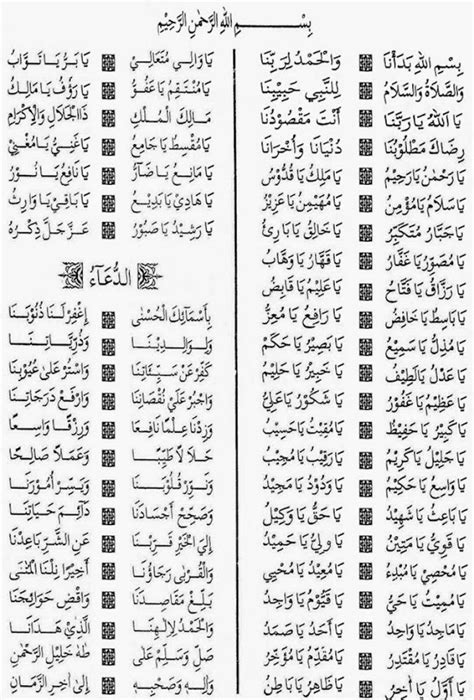 بِسْـــــمِ اللهِ الرَّحْمٰنِ الرَّحِيْمِ
بِسْمِ اللهِ بَدَأْنَا وَالْحَمْدُ لِرَبِّنَا
وَالصَّلَاةُ وَالسَّلَامُ لِلنَّبِيِّ حَبِيْبِنَا
يَا اَللهُ يَا رَبَّنَا أَنْتَ مَقْصُوْدُنَا
رِضَاكَ مَطْلُوْبُنَا دُنْيَانَا وَأُخْرَانَا
يَا رَحْمٰنُ يَا رَحِيْمُ يَا مَلِكُ يَا قُدُّوْسُ
يَا سَلَامُ يَا مُؤْمِنُ يَا مُهَيْمِنُ يَا عَزِيْزُ
يَا جَبَّارُ مُتَكَبِّرُ يَا خَالِقُ يَا بَارِئُ
يَا مُصَوِّرُ يَا غَفَّارُ يَا قَهَّارُ يَا وَهَّابُ
يَا رَزَّاقُ يَا فَتَّاحُ يَا عَلِيْمُ يَا قَابِضُ
يَا بَاسِطُ يَا خَافِضُ يَا رَافِعُ يَا مُعِزُّ
يَا مُذِلُّ يَا سَمِيْعُ يَا بَصِيْرُ يَا حَكَمُ
يَا عَدْلُ يَا لَطِيْفُ يَا خَبِيْرُ يَا حَلِيْمُ
يَا عَظِيْمُ يَا غَفُوْرُ يَا شَكُوْرُ يَا عَلِيُّ
يَا كَبِيْرُ يَا حَفِيْظُ يَا مُقِيْتُ يَا حَسِيْبُ
يَا جَلِيْلُ يَا كَرِيْمُ يَا رَقِيْبُ يَا مُجِيْبُ
يَا وَاسِعُ يَا حَكِيْمُ يَا وَدُوْدُ يَا مَجِيْدُ
يَا بَاعِثُ يَا شَهِيْدُ يَا حَقُّ يَا وَكِيْلُ
يَا قَوِيُّ يَا مَتِيْنُ يَا وَلِيُّ يَا حَمِيْدُ
يَا مُحْصِيْ يَا مُبْدِءُ يَا مُعِيْدُ يَا مُحْيِيْ
يَا مُمِيْتُ يَا حَيُّ يَا قَيُّوْمُ يَا وَاجِدُ
يَا مَاجِدُ يَا وَاحِدُ يَا أَحَدُ يَا صَمَدُ
يَا قَادِرُ يَا مُقْتَدِرُ يَا مُقَدِّمُ يَا مُؤَخِّرُ
يَا أَوَّلُ يَا أٰخِرُ
يَا وَالِيْ مُتَعَالِيْ يَا بَرُّ يَا تَوَّابُ
يَا مُنْتَقِمُ يَا عَفُوُّ يَا رَؤُفُ يَا مَالِكُ
مَالِكَ الْمُلْكِ ذَا الْجَلَالِ وَالْإِكْرَامِ
يَا مُقْسِطُ يَا جَامِعُ يَا غَنِيُّ يَا مُغْنِيْ
يَا مَانِعُ يَا ضَآرُّ يَا نَافِعُ يَا نُوْرُ
يَا هَادِيْ يَا بَدِيْعُ يَا بَاقِيْ يَا وَارِثُ
يَا رَشِيْدُ يَا صَبُوْرُ عَزَّ جَلَّ ذِكْرُهُ
الدُّعَآءُ
بِأَسْمَائِكَ الْحُسْنٰى إِغْفِرْ لَنَا ذُنُوْبَنَا
وَلِوَالِدِيْنَا وَذُرِّيَّاتِنَا
كَفِّرْ عَنْ سَيِّئَاتِنَا وَاسْتُرْ عَلٰى عُيُوْبِنَا
وَاجْبُرْ عَلٰى نُقْصَانِنَا وَارْفَعْ دَرَجَاتِنَا
وَزِدْنَا عِلْمًا نَافِعًا وَرِزْقًا وَاسِعًا
حَلَالًا طَيِّبًا وَعَمَلًا صَالِحًا
وَنَوِّرْ قُلُوْبَنَا وَيَسِّرْ أُمُوْرَنَا
وَصَحِّحْ أَجْسَادَنَا دَآئِمَ حَيَاتِنَا
إِلَى الْخَيْرِ قَرِّبْنَا عَنِ الشَّرِّ بَاعِدْنَا
وَالْقُرْبٰى رَجَاؤُنَا أَخِيْرًا نِلْنَا الْمُنٰى
بَلِّغْ مَقَاصِدَنَا وَاقْضِ حَوَائِجَنَا
وَالْحَمْدُ لِإِلٰهِنَا الَّذِيْ هَدَانَا
صَلِّ وَسَلِّمْ عَلٰى طٰهَ خَلِيْلِ الرَّحْمٰنِ
وَاٰلِهِ وَصَحْبِهِ إِلٰى اٰخِرِ الزَّمَانِ